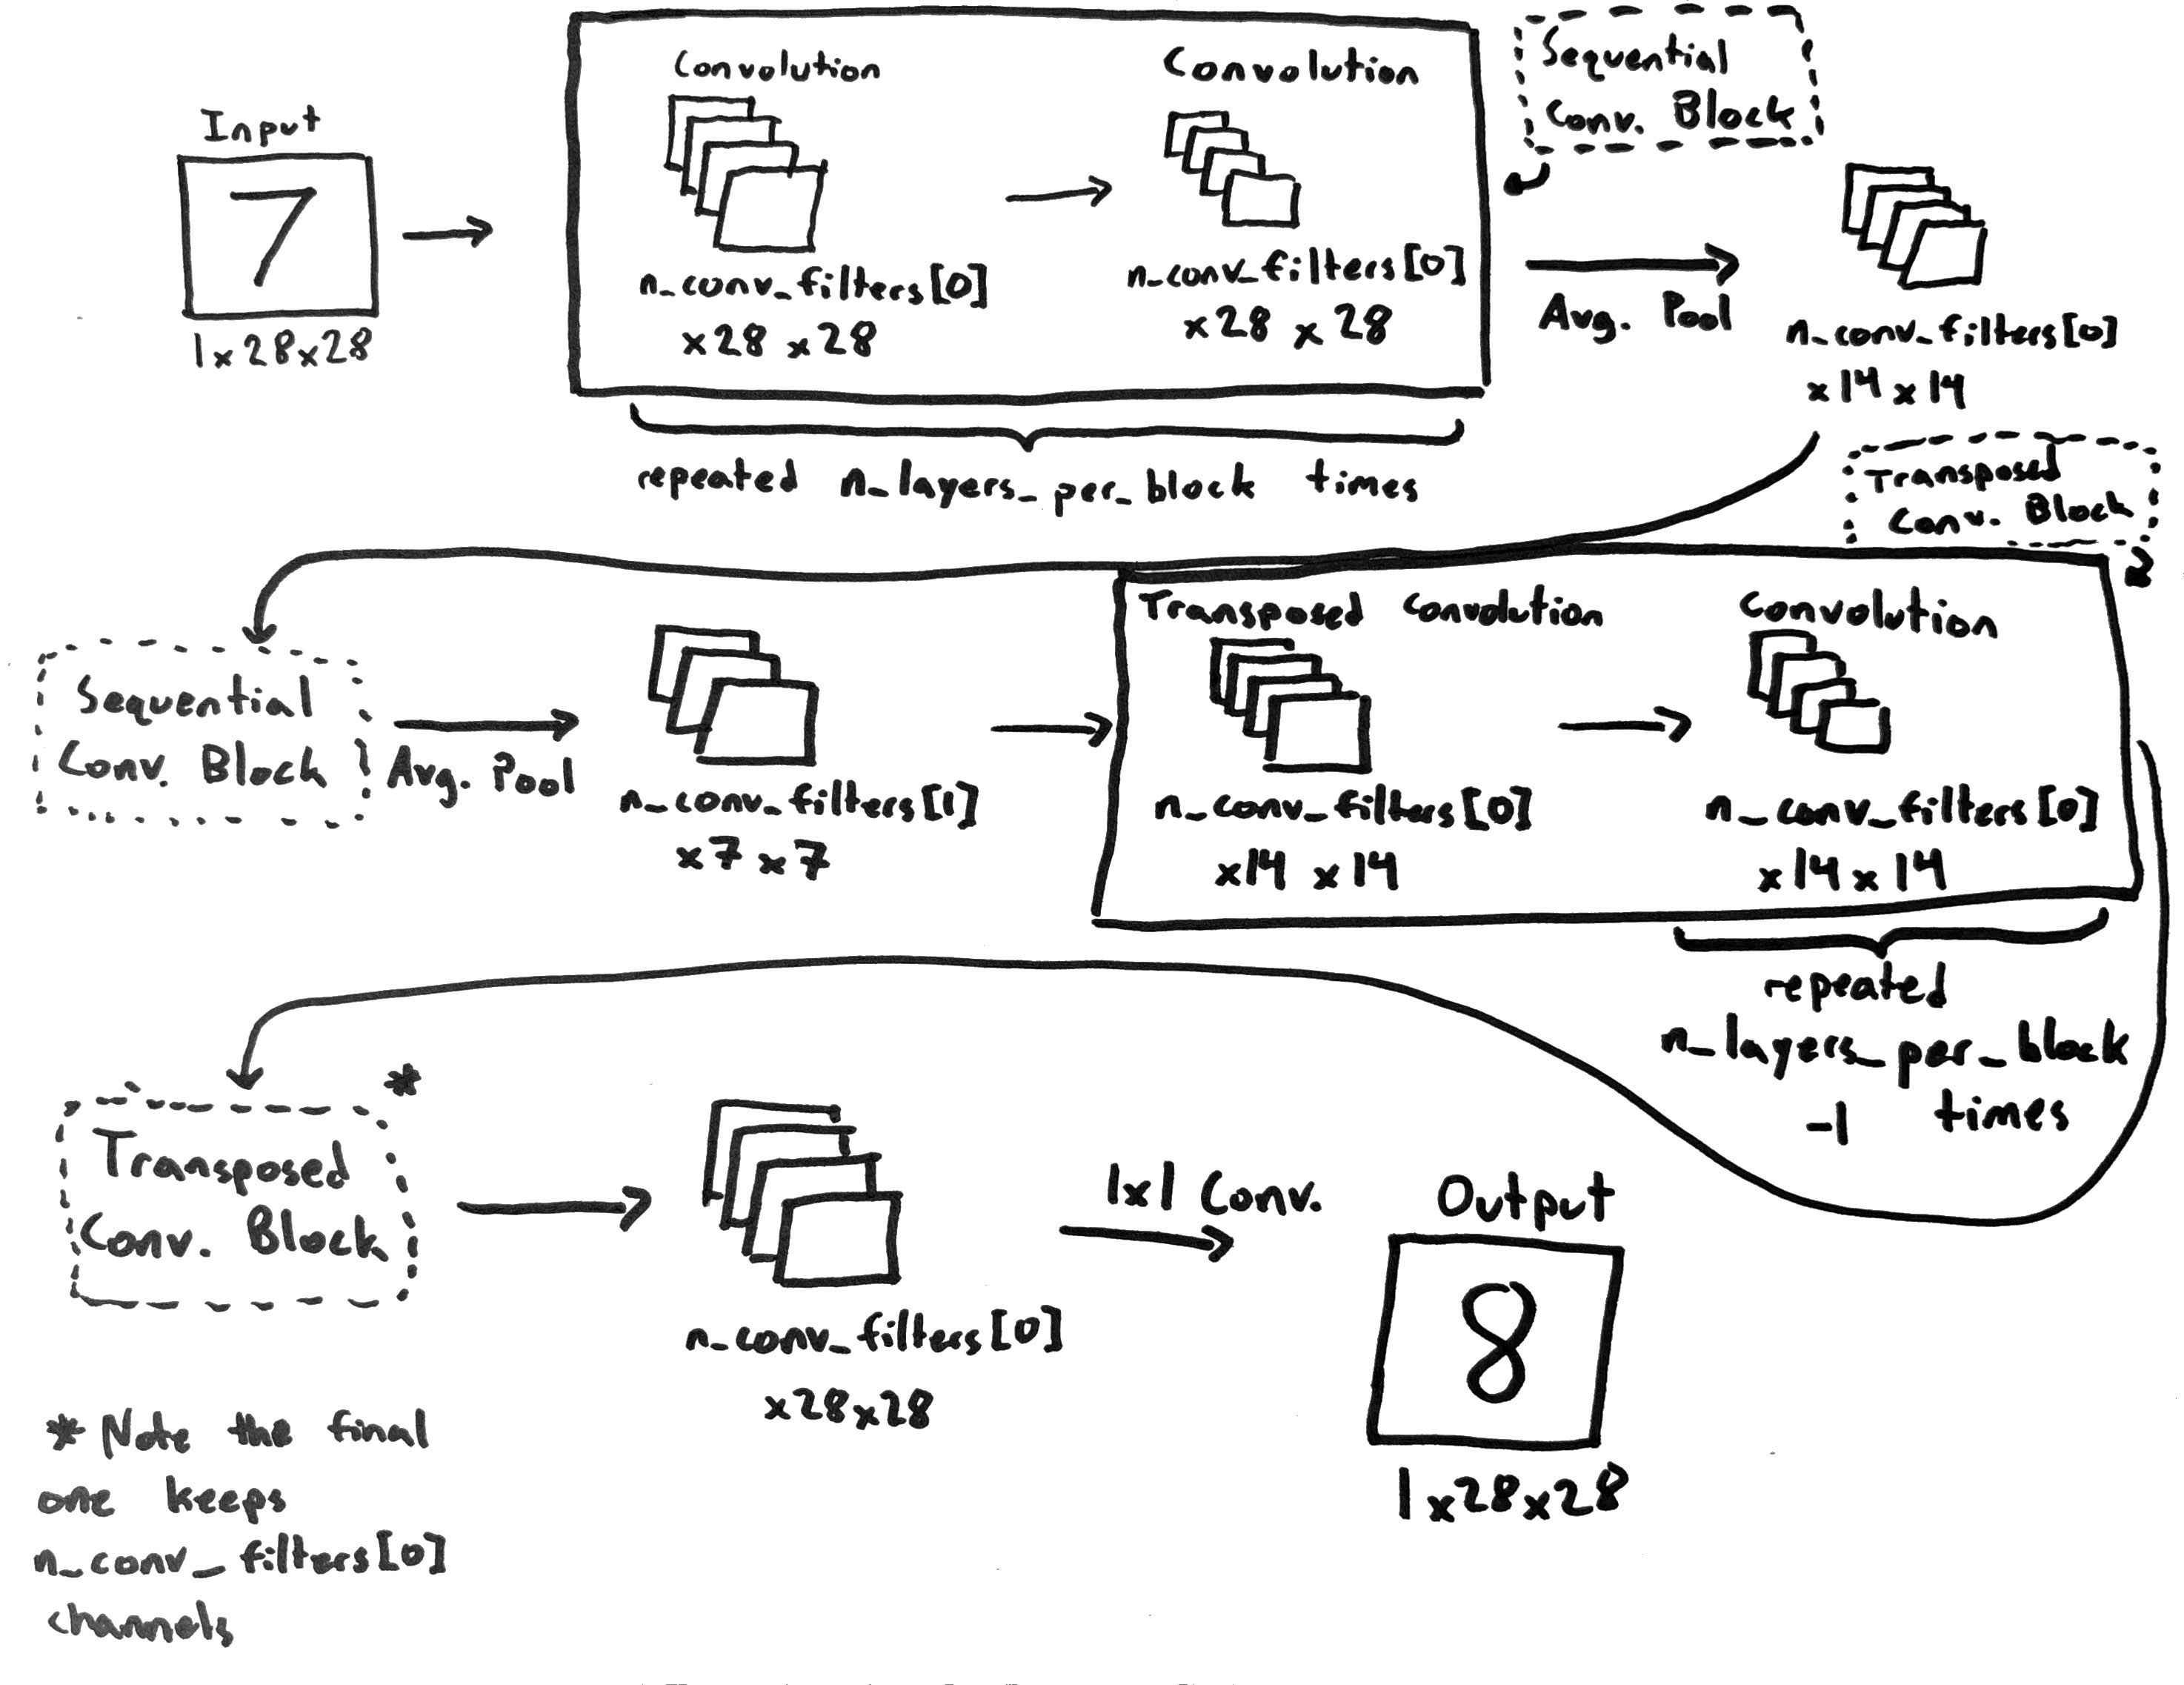 Input
7
1x28x28
Convolution
n_conv_filters[0]
x28x28
Convolution
n_conv_filters[0]
x28x28
repeated n_layers_per_block times
Sequential
Conv. Block
Avg. Pool
n_conv_filters[0]
x14x14
Sequential
Conv. Block
Avg. Pool
n_conv_filters[1]
x7x7
Transposed
Conv. Block
Transposed Convolution
n_conv_filters[0]
x14x14
Convolution
n_conv_filters[0]
x14x14
repeated
n_layers_per_block
-1 times
Transposed
Conv. Block
*
n_conv_filters[0]
x28x28
1x1 Conv.
Output
8
1x28x28
* Note the final
one keeps
n_conv_filters[0]
channels